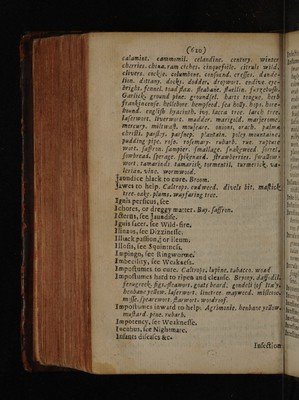 (620)
calamint. cammomil. celandine. centory. winter
cherries. china. ram ciches. cinquefoile. citruls wild.
clivers. cockle. columbine. confound. cresses. dande-
lion. dittany. docks. dodder. dropwort. endive. eye-
bright. fennel. toad flax. fleabane. fluellin.
Garlick. ground pine. groundsel. harts tongue. herb
frankincense. hellebore. hempseed. sea holly. hops. hore-
hound. english hyacinth. ivy. lacca tree. larch tree.
laserwort. liverwort. madder. marigold. masjerome.
mercury. miltwast. mugeare. onions. orach. palma
christi. parsley. parsnip. plantain. poley mountaine.
pudding pipe. rose. rosemary. rubarb. rue. rupture
wort. saffron. sampier. smallage. snakeweed.
sowbread. sperage. spikenard. strawberries. swallow-
wort. tamarinds. tamarisk. tormentil. turmerick. va-
lerian. vine. wormwood.
Jaundice black to cure. Broom.
Jawes to help. Caltrops. cudweed. divels bit. mastick
tree. oake. plane. wayfaring tree.
Ignis persicus, see
Ichores, or dreggy matter. Bay. saffron.
Icterus, see Jaundise.
Ignis sacer, see Wild-fire.
Illiack passion, or ileum.
Illosis, see Squintnesse.
Impingo, see Ringworme.
Imbecility, see Weakness.
Impostumes to cure. Caltrops. lupine. tabacco. woad
Impostumes hard to ripen and cleanse. Bryony.
fenugreek. figs. fleawort. goats beard.
henbane yellow. laserwort. linetree. mayweed. misletoe.
spearewort. starwort. woodroof.
Impostumes inward to help. Agrimonie. henbane yellow.
mustard. pine. rubarb.
Impotency, see Weaknesse.
Incubus, see Nightmare.
Infants diseases &c.
Infection